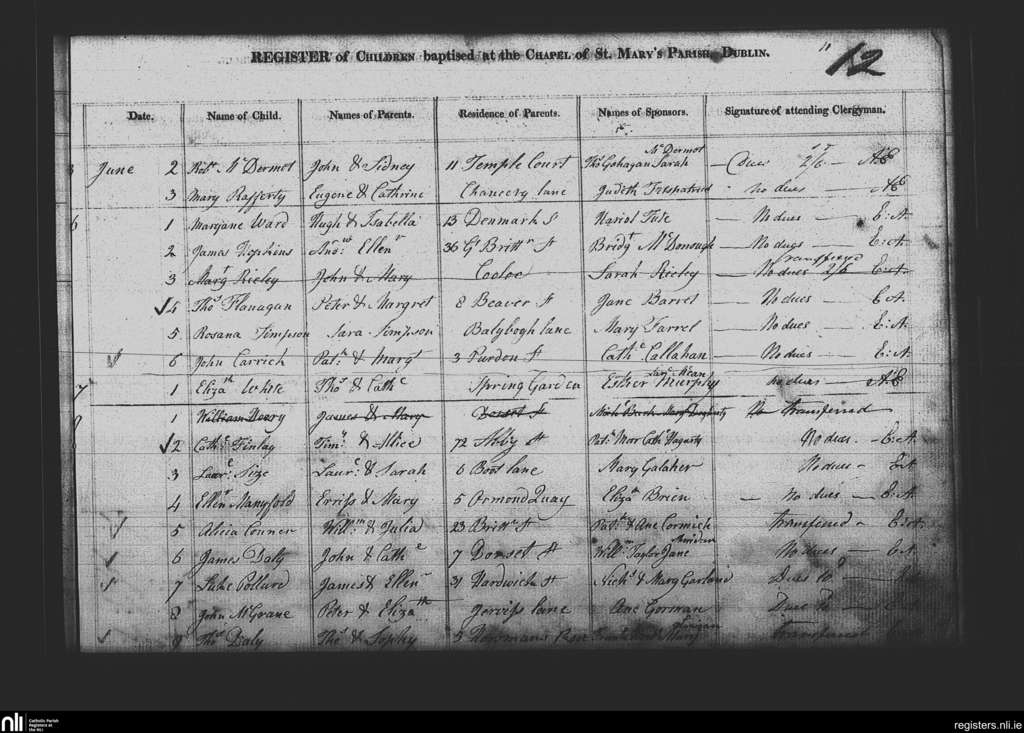 REGISTER of CHILDREN baptised at the CHAPEL of St. MARY'S PARISH, DUBLIN.
12
Date. Name of Child. Names of Parents. Residence of Parents. Names of Sponsors. Signature of attending Clergyman.
June 2 Robt McDermot John & Sidney 11 Temple Court Thos Gahagan Sarah McDermot dues 2/6 AB
3 Mary Rafferty Eugene & Cathrine Chancery lane Judeth Fitspatrick no dues
6 1 Maryane Ward Hugh & Isabella 13 Denmark St No dues E:A
2 James Hopkins Ellen 36 Gt Brittn St Bridgt McDonough No dues E:A
3 Margt Rieley John & Mary Sarah Rieley No dues 2/6 E:A
4 Thos Flanagan Peter & Margret 8 Beaver St Jane Barret No dues E A
5 Rosana Simpson Sara Simpson Balybogh lane Mary Farrel No dues E:A
6 John Carrick Patk & Margt 3 Purdon St Cathe Callahan No dues E:A
7 1 Elizath White Thos & Cathe Spring Garden Esther Murphy no dues
1 William James & Mary Dorset St transferred
2 Cathe Finlay Timy & Allice 72 Abby St No dues E:A
3 Laure Size Laure & Sarah 6 Boot lane Mary Galaher No dues EA
4 Ellen Mannfold Erriss & Mary 5 Ormond Quay Elizath Brien no dues E:A
5 Alicia Conner Willm & Julia 23 Brittn St Patk & Ane Cormick Transferred E:A
6 James Daly John & Cathe 7 Dorset St Willm Taylor Jane No dues E A
7 Luke Pollurd James & Ellen 31 Hardwick St Nichs & Mary Dues
8 John McGrane Peter & Elizath Jerviss lane Ane Gorman
9 Thos Daly Thos & Sophy 5 transferred
nli Catholic Parish
Registers at
the NLI
registers.nli.ie